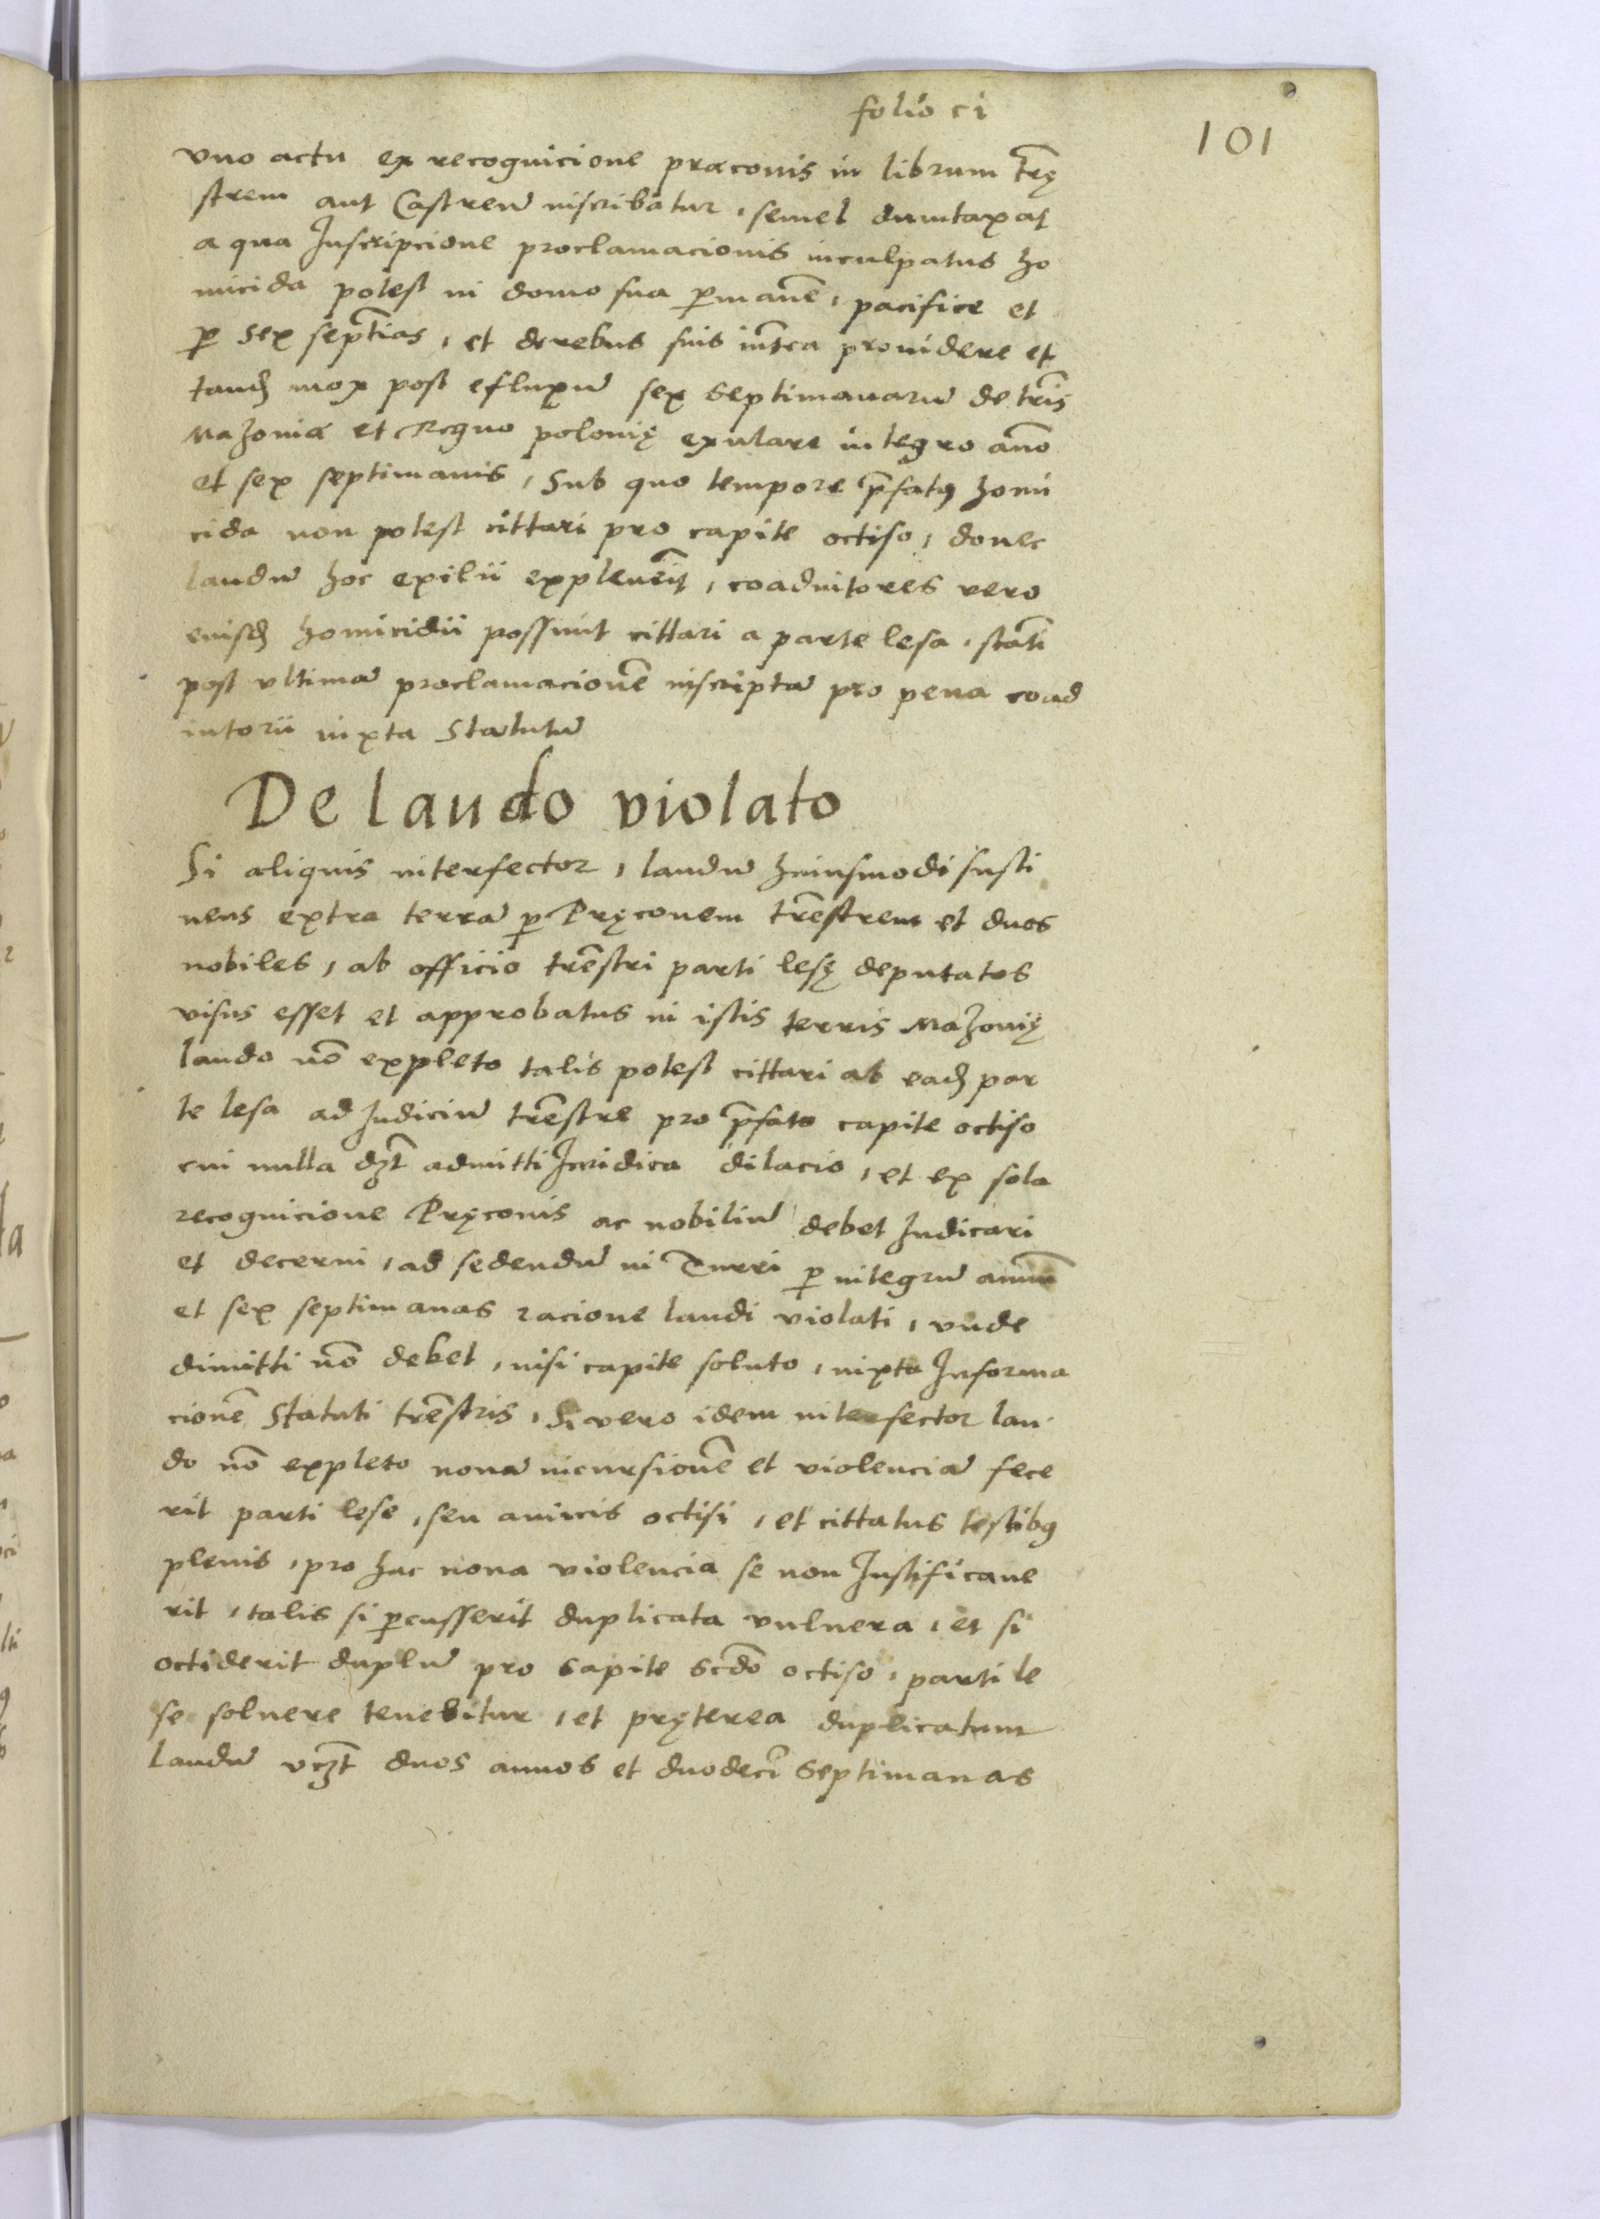 folio ci
101
vno actu ex recognicione præconis in librum trẽ
strem aut Castreñ inscribatur, semel dumtaxat
a qua Inscripcione proclamacionis inculpatus ho
micida potest in domo sua ꝑmanẽ, pacifice et
ꝑ sex septĩas, et de rebus suis inťea prouidere et
tandẽ mox post efluxũ sex septimanarũ de tr̃is
Mazoniæ et Regno polonię exulare integro año
et sex septimanis, Sub quo tempore p̃fatꝰ homi
cida non potest cittari pro capite octiso, donec
laudũ hoc exilii expleueĩt, coadiutores vero
euisdẽ homicidii possunt cittari a parte lesa, statĩ
post vltimã proclamacionẽ inscriptã pro pena coad
iutorii iuxta Statutũ
De laudo violato
Si aliquis interfector, laudũ huiusmodi susti
nens extra terrã ꝑ Pręconem trẽstrem et duos
nobiles, ab officio trẽstri parti lesę deputatos
visus esset et approbatus in istis terris Mazonię
laudo nõ expleto talis potest cittari ab eadẽ par
te lesa ad Iudiciũ trẽstre pro p̃fato capite octiso
cui nulla dꝫt admitti Iuridica dilacio, et ex sola
recognicione Pręconis ac nobiliũ debet Iudicari
et decerni, ad sedendũ in Turri ꝑ integrũ annũ
et sex septimanas racione laudi violati, vnde
dimitti nõ debet, nisi capite soluto, iuxta Informa
cionẽ Statuti trẽstris, Si vero idem interfector lau
do nõ expleto nouã incursionẽ et violenciã fece
rit parti lese, seu amicis octisi, et cittatus testibꝰ
plenis, pro hac noua violencia se non Iustificaue
rit, talis si ꝑcusserit duplicata vulnera, et si
octiderit duplũ pro capite scdõ octiso, parti le
se soluere tenebitur, et pręterea duplicatum
laudũ vꝫt duos annos et duodecĩ septimanas